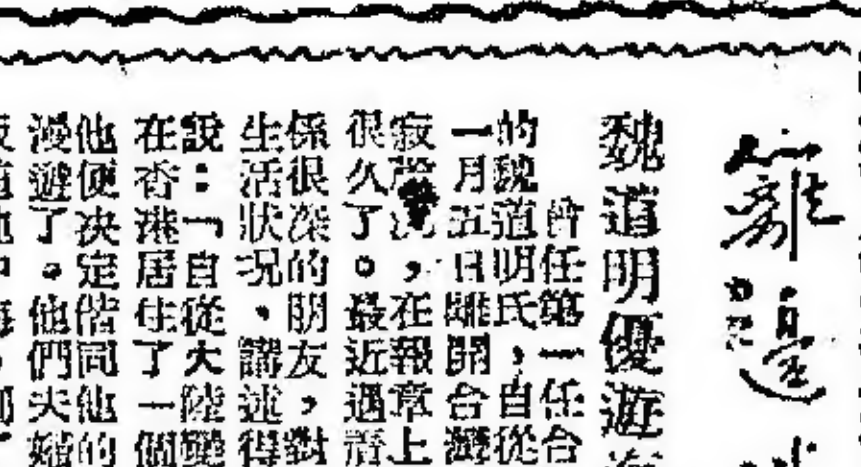 籬邊
魏道明優遊
曾任第一任台
的魏道明氏，自從
一月五日離開台灣
寂，在報章上
很久了。最近遇
係很深的朋友，對
生活狀況，講述得
說：「自從大陸變
在香港居住了一個
他便決定偕同他的
漫遊了。他們夫婦